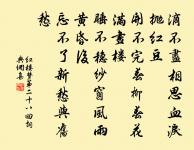 滴不盡相思血淚
拋紅豆
開不完春柳春花
滿畫樓
睡不穩紗窗風雨
黃昏後
忘不了新愁與舊
愁
紅樓夢第二十八回詞